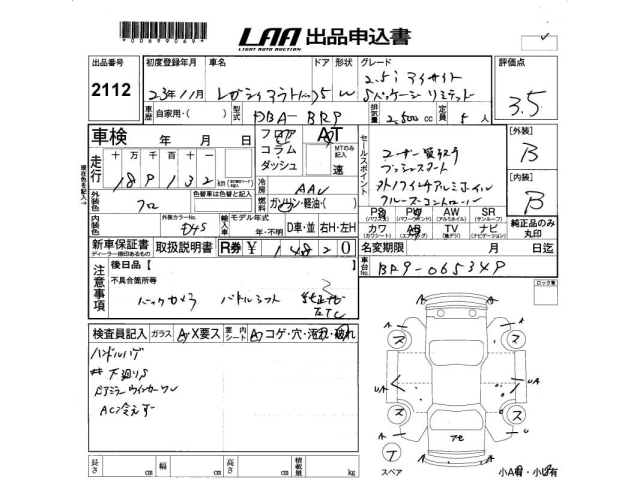 *00699069*
LAA 出品申込書
LIGHT AUTO AUCTION
出品番号 初度登録年月 車名 ドア 形状 グレード 評価点
2112 23年11月 レガシィアウトバック 5 W 2.5i アイサイト Sパッケージ リミテッド 3.5
車歴 自家用・( ) 型式 DBA-BR9 排気量 2,500cc 定員 5人
車検 年 月 日 フロア コラム ダッシュ AT MTのみ記入 速
セールスポイント
ユーザー買取り
プッシュスタート
クルーズコントロール
[外装] B
[内装] B
走行 十万千百十 km
現在色を記入
冷房 AAC
外装色 クロ 色替車は色替と記入
燃料 ガソリン・軽油・( )
内装色 外装カラーNo. D4S
輸入車 モデル年式 年・不明 D車・並 右H・左H
PS (パワステ) PW (パワーウィンド) AW (アルミホイル) SR (サンルーフ)
カワ (カワシート) AB (エアバッグ) TV (地デジ) ナビ (ナビゲーション)
純正品のみ丸印
新車保証書 取扱説明書 R券 ¥
ディーラー捺印あるもの
名変期限 月 日迄
車台No. BR9-065349
ロック車
注意事項
後日品【 】
不具合箇所等
バックカメラ パドルシフト 純正ナビ ETC
検査員記入 ガラス A・X要ス 室内シート A・コゲ・穴・汚れ・破れ
ハンドルハゲ
# 下廻りS
ドアミラーウィンカーワレ
AC冷えず
長さ cm 幅 cm 高さ cm 積載量 kg
A
ス
UA
スペア
小A有・小U有